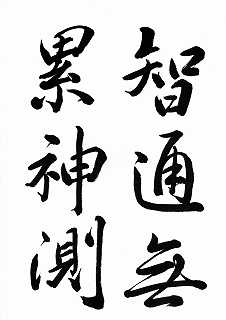 智通無
累神測